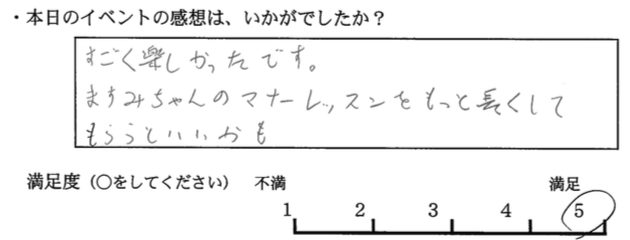 ・本日のイベントの感想は、いかがでしたか？
すごく楽しかったです。
ますみちゃんのマナーレッスンをもっと長くして
もらうといいかも
満足度（〇をしてください） 不満 満足
1 2 3 4 5